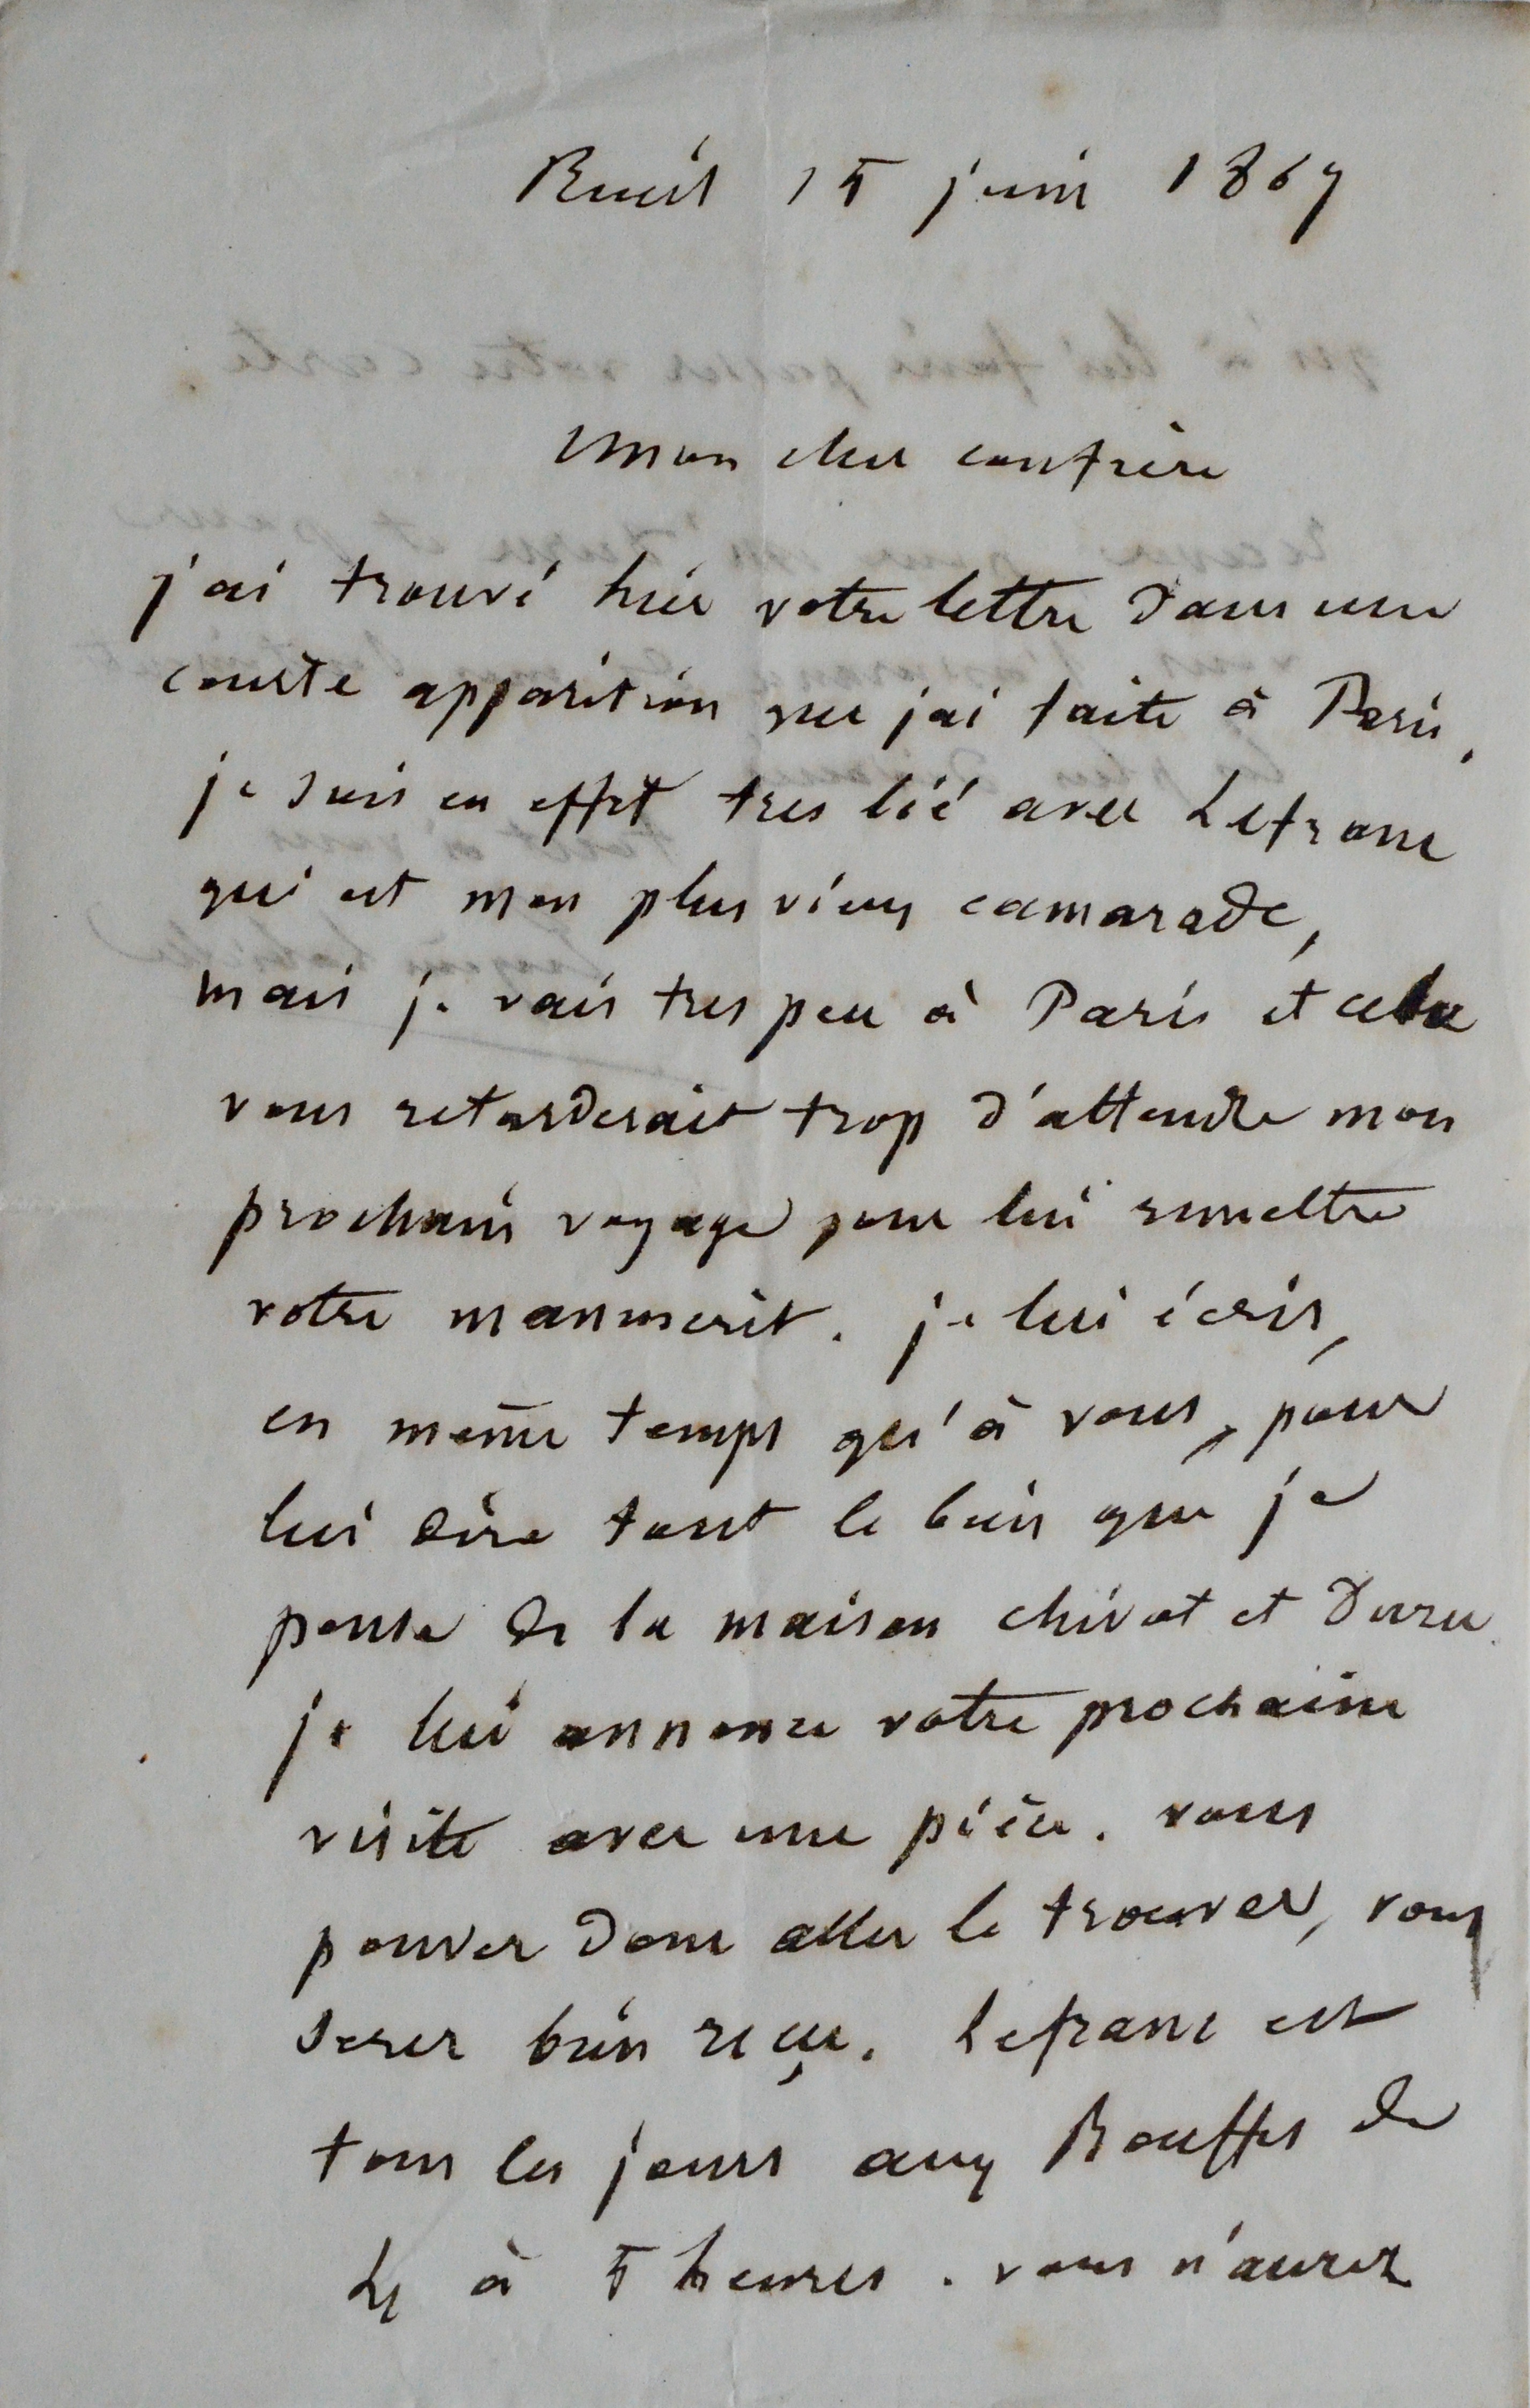 Rueil 15 juin 1867
Mon cher confrère
j'ai trouvé hier votre lettre dans une
courte apparition que j'ai faite à Paris.
je suis en effet tres lié avec Lefranc
qui est mon plus vieux camarade,
mais je vais tres peu à Paris et cela
vous retarderait trop d'attendre mon
prochain voyage pour lui remettre
votre manuscrit. je lui écris,
en même temps qu'à vous, pour
lui dire tout le bien que je
pense de la maison chivot et Duru.
je lui annonce votre prochaine
visite avec une pièce. vous
pouvez donc aller le trouver, vous
serez bien reçu. Lefranc est
tous les jours aux Bouffes de
4 à 5 heures. vous n'aurez